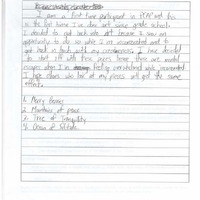 I am a first time participant in PCAP and this
is the first time I've done art since grade school.
I decided to get back into art because I saw an
opportunity to do so while I'm incarcerated and to
get back in touch with my creative side. I have decided
to start off with these pieces because these are mental
escapes when I'm feeling overwhelmed while incarcerated.
I hope others who look at my pieces will get the same
effect.
1. Merry Berries
2. Mountains of peace
3. Time of Tranquility
4. Ocean of Solitude